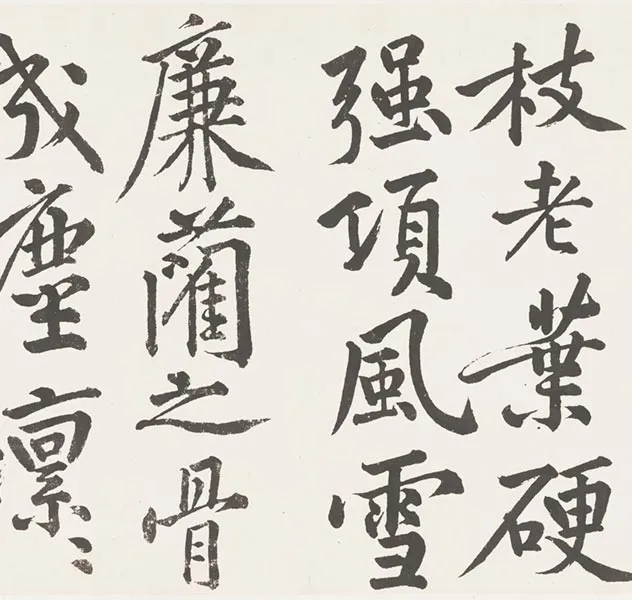 枝老葉硬
强項風雪
廉藺之骨
成塵凛〻